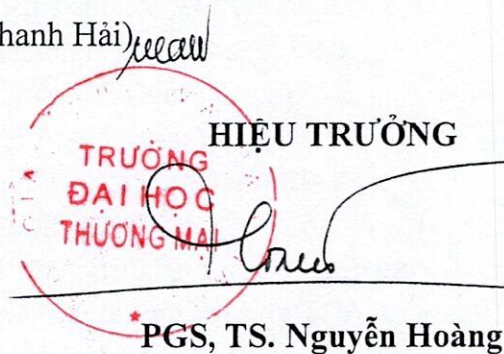 hanh Hải)
HIỆU TRƯỞNG
TRƯỜNG
ĐẠI HỌC
THƯƠNG MẠI
PGS, TS. Nguyễn Hoàng